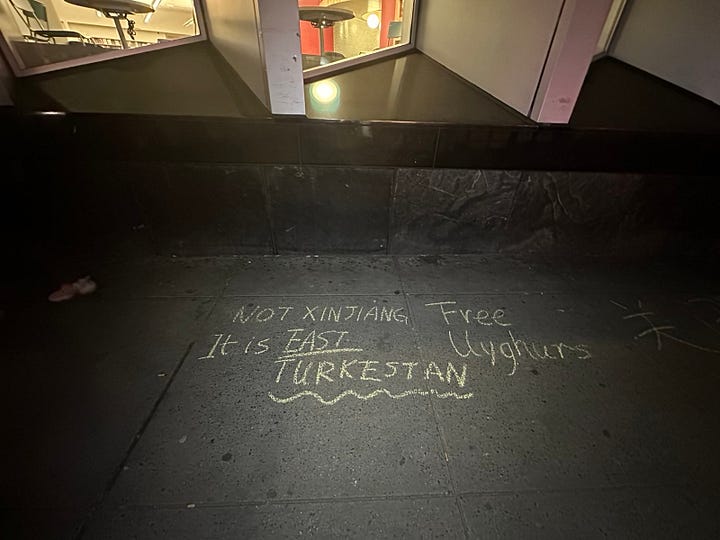 NOT XINJIANG
It is EAST
TURKESTAN
Free
Uyghurs